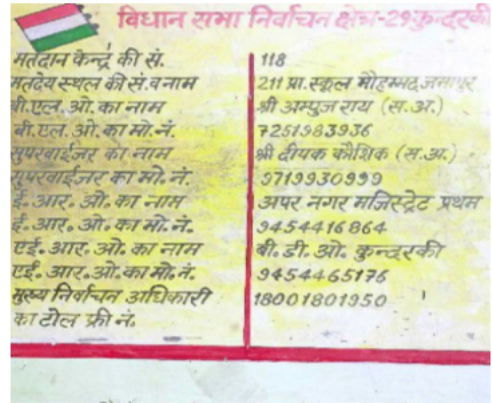 विधान सभा निर्वाचन क्षेत्र-29कुन्दरकी
मतदान केन्द्र की सं. 118
मतदेय स्थल की सं.व नाम 211 प्रा.स्कूल मौहम्मद जमापुर
बी.एल.ओ.का नाम श्री अम्पुज राय (स.अ.)
बी.एल.ओ.का मो.नं. 7251983936
सुपरवाईजर का नाम श्री दीपक कौशिक (स.अ.)
सुपरवाईजर का मो.नं. 9719930999
ई.आर.ओ.का नाम अपर नगर मजिस्ट्रेट प्रथम
ई.आर.ओ.का मो.नं. 9454416864
एई.आर.ओ.का नाम बी.डी.ओ. कुन्दरकी
एई.आर.ओ.का मो.नं. 9454465176
मुख्य निर्वाचन अधिकारी 18001801950
का टोल फ्री नं.